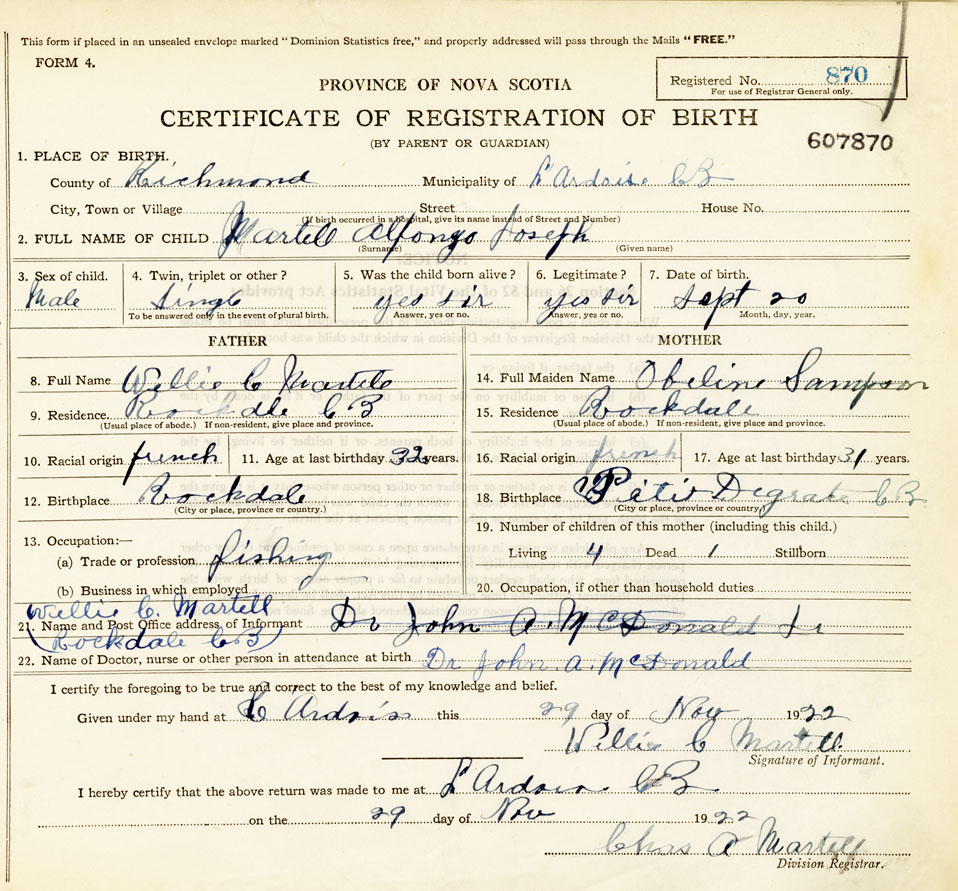 This form if placed in an unsealed envelope marked “Dominion Statistics free,” and properly addressed will pass through the Mails “FREE.”
FORM 4.
Registered No. 870
For use of Registrar General only.
PROVINCE OF NOVA SCOTIA
CERTIFICATE OF REGISTRATION OF BIRTH
607870
(BY PARENT OR GUARDIAN)
1. PLACE OF BIRTH.
County of Richmond Municipality of L'Ardoise CB
City, Town or Village Street House No.
(If birth occurred in a hospital, give its name instead of Street and Number)
2. FULL NAME OF CHILD Martell Alfonso Joseph
(Surname) (Given name)
3. Sex of child. 4. Twin, triplet or other? 5. Was the child born alive? 6. Legitimate? 7. Date of birth.
Male Single yes sir yes sir Sept 20
To be answered only in the event of plural birth. Answer, yes or no. Answer, yes or no. Month, day, year.
FATHER MOTHER
8. Full Name Willie C Martell 14. Full Maiden Name Obeline Sampson
9. Residence Rockdle CB 15. Residence Rockdale
(Usual place of abode.) If non-resident, give place and province. (Usual place of abode.) If non-resident, give place and province.
10. Racial origin french 11. Age at last birthday 32 years. 16. Racial origin french 17. Age at last birthday 31 years.
12. Birthplace Rockdale 18. Birthplace Petit Degrate CB
(City or place, province or country.) (City or place, province or country)
19. Number of children of this mother (including this child.)
13. Occupation:—
(a) Trade or profession fishing Living 4 Dead 1 Stillborn
(b) Business in which employed 20. Occupation, if other than household duties
Willie C. Martell
21. Name and Post Office address of Informant Dr John A. McDonald
Rockdale CB
22. Name of Doctor, nurse or other person in attendance at birth Dr John. A. McDonald
I certify the foregoing to be true and correct to the best of my knowledge and belief.
Given under my hand at L Ardois this 29 day of Nov 1922
Willie C Martell
Signature of Informant.
I hereby certify that the above return was made to me at L'Ardois CB
on the 29 day of Nov 1922
Chas A Martell
Division Registrar.